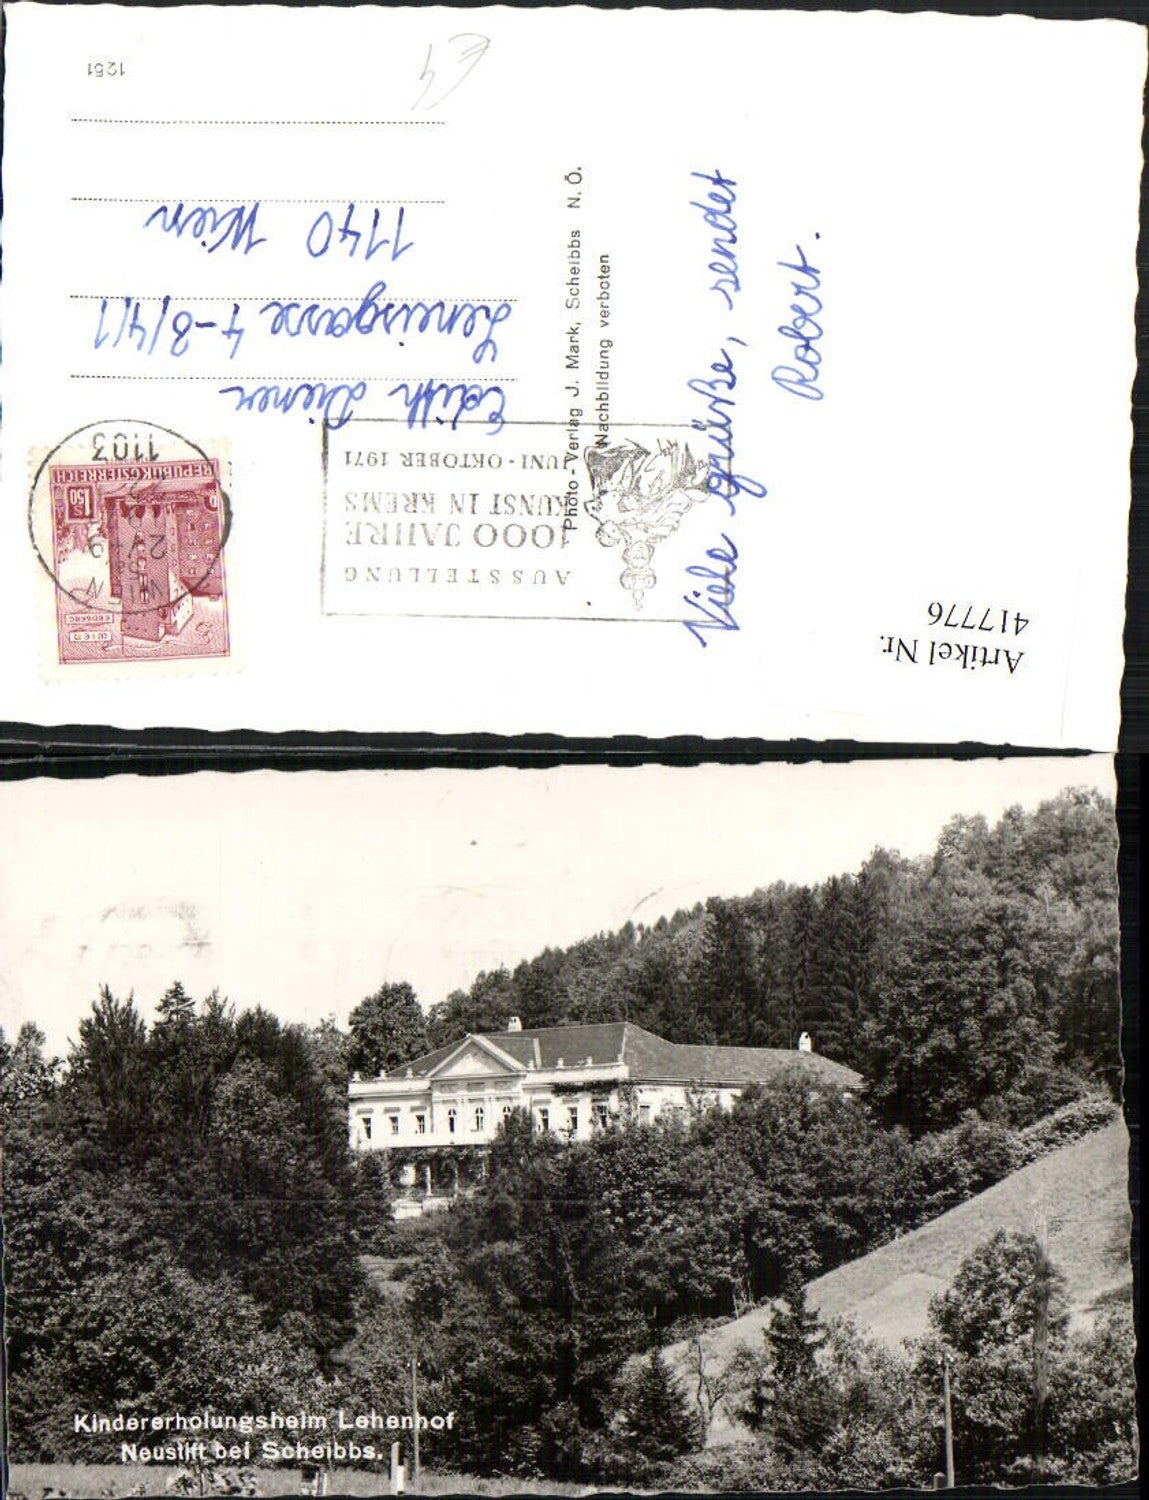 Viele Grüße, sendet
Robert.
Photo - Verlag J. Mark, Scheibbs N. Ö.
Nachbildung verboten
AUSSTELLUNG
1000 JAHRE
KUNST IN KREMS
JUNI - OKTOBER 1971
WIEN
1103
REPUBLIK ÖSTERREICH
1.50
WIEN
ERDBERG
Edith
4-8/4/1
1140 Wien
1251
Artikel Nr.
417776
Kindererholungsheim Lehenhof
Neustift bei Scheibbs.